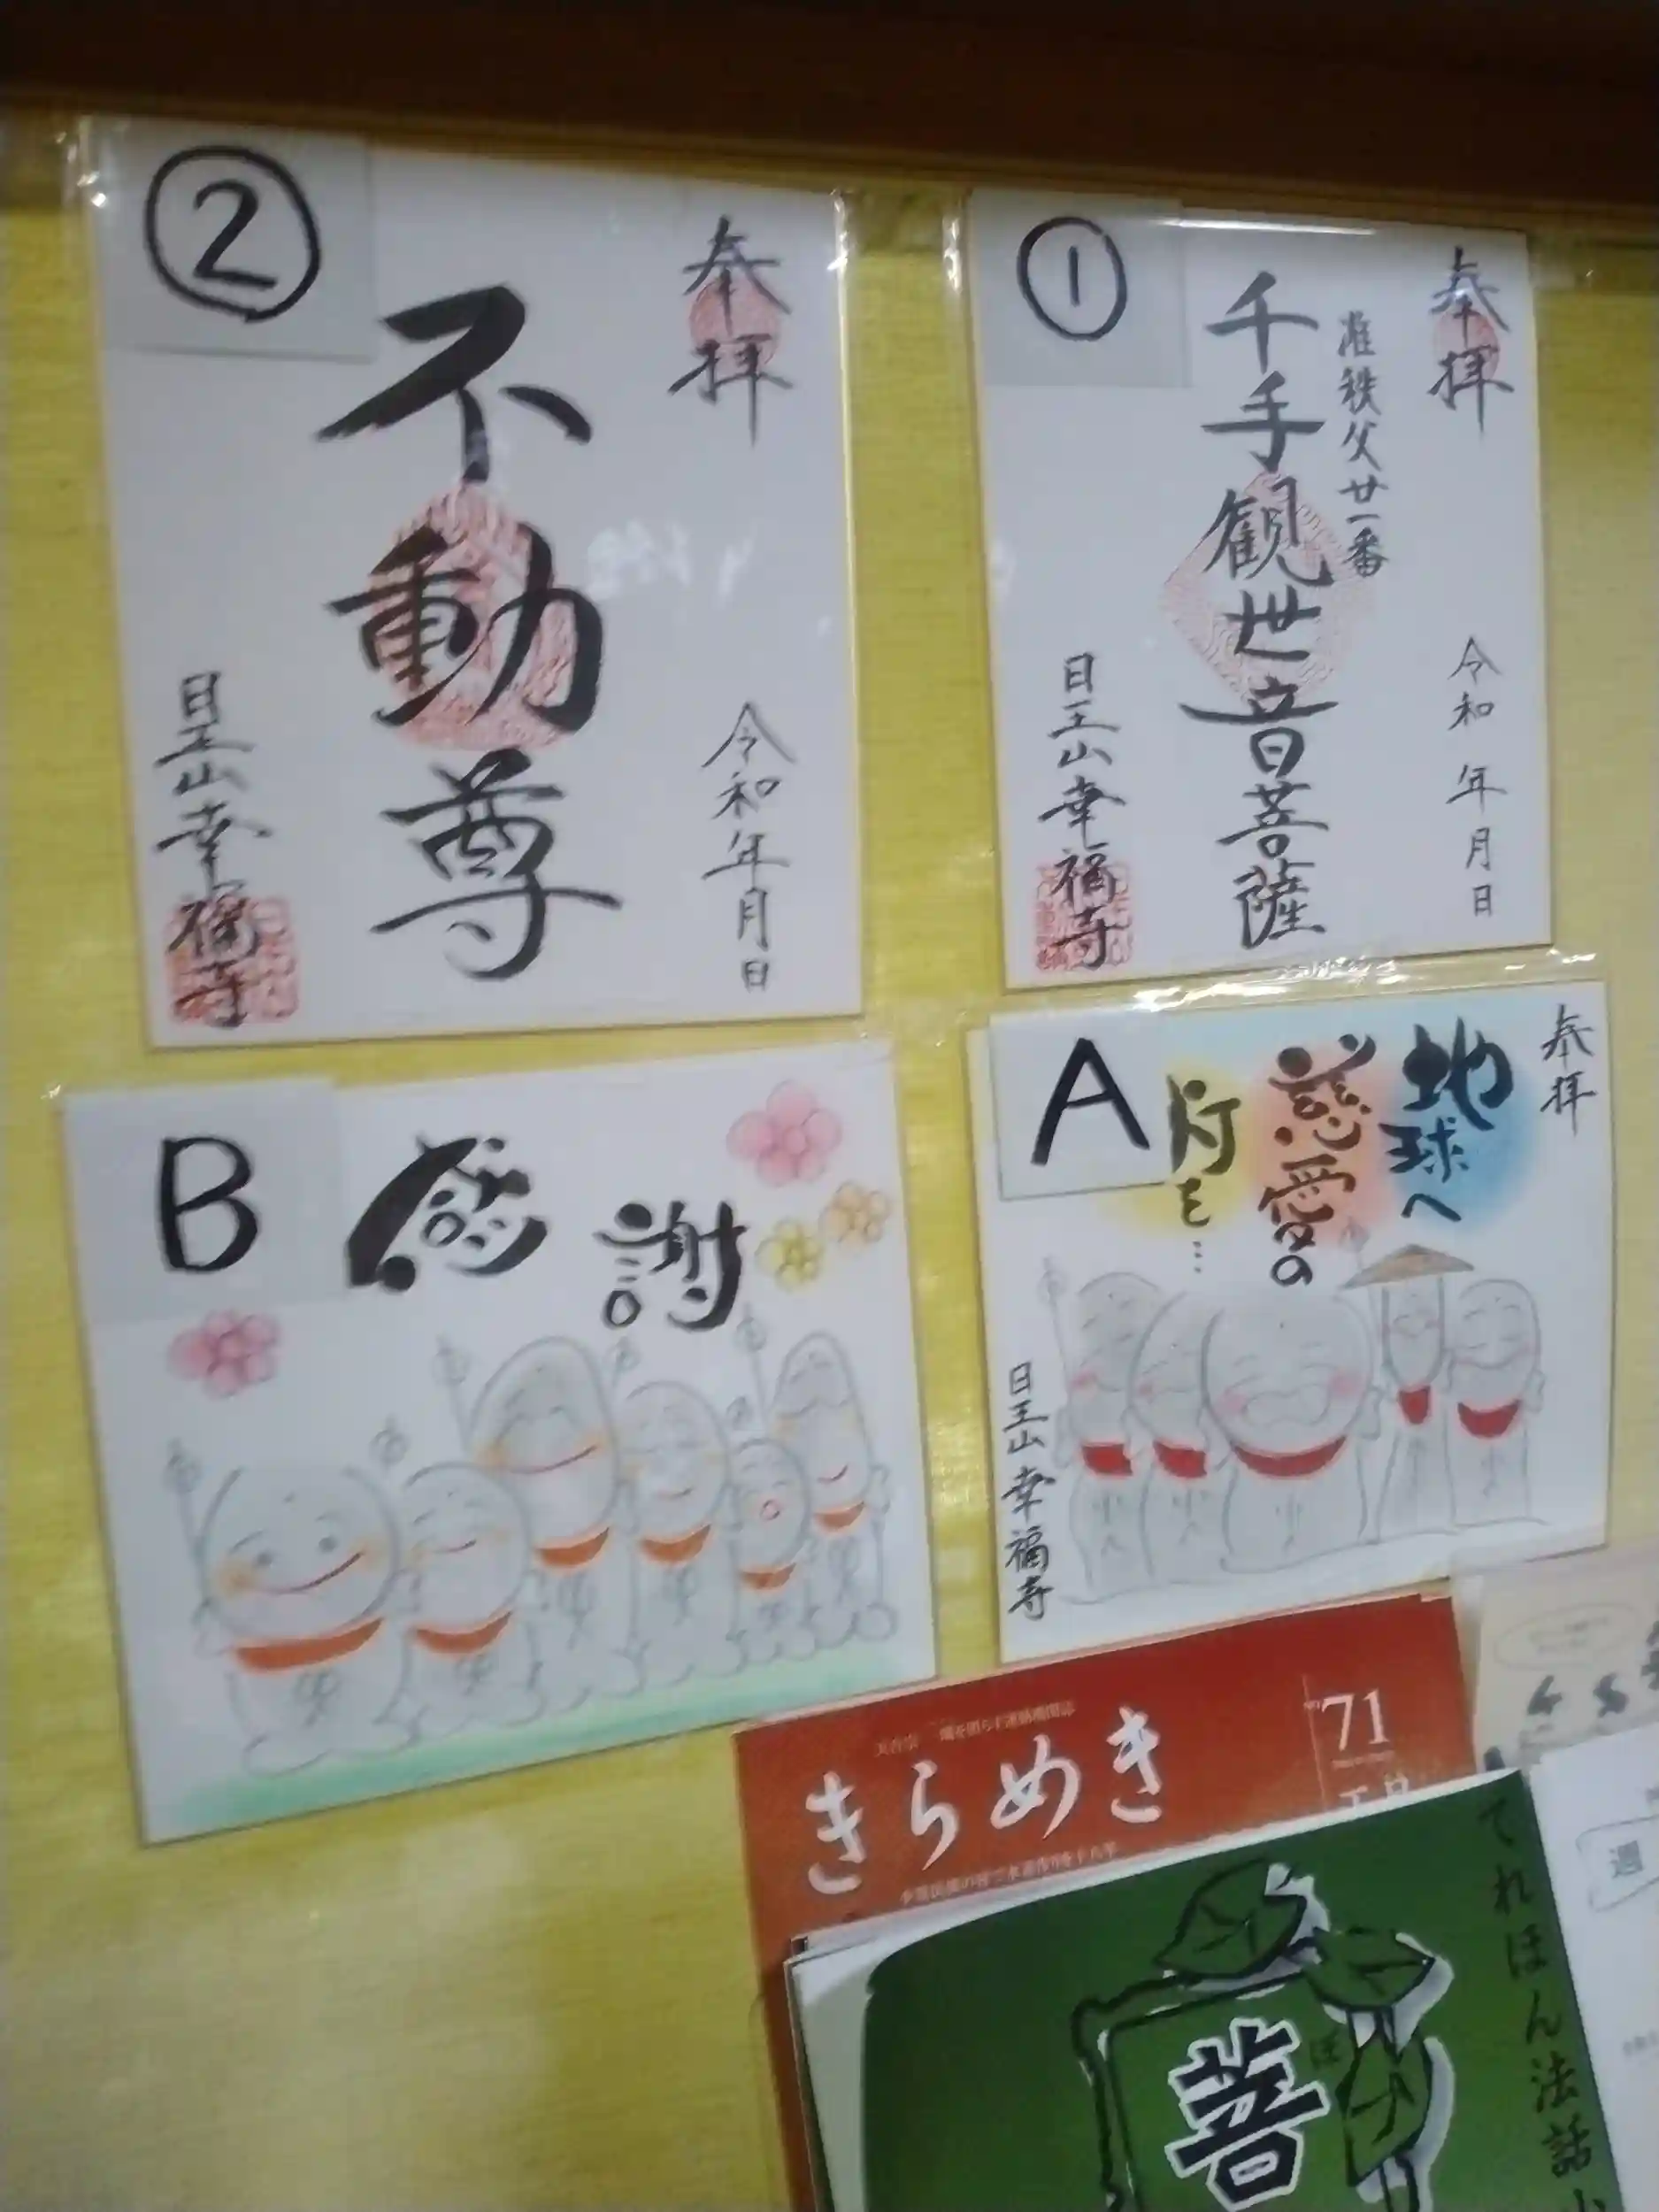 ①
奉拝
准秩父廿一番
千手観世音菩薩
令和 年 月 日
日王山幸福寺
②
奉拝
不動尊
令和 年 月 日
日王山幸福寺
A
奉拝
地球へ
慈愛の
灯を…
日王山 幸福寺
B
感謝
きらめき
71
てれほん法話
菩
ほ
週